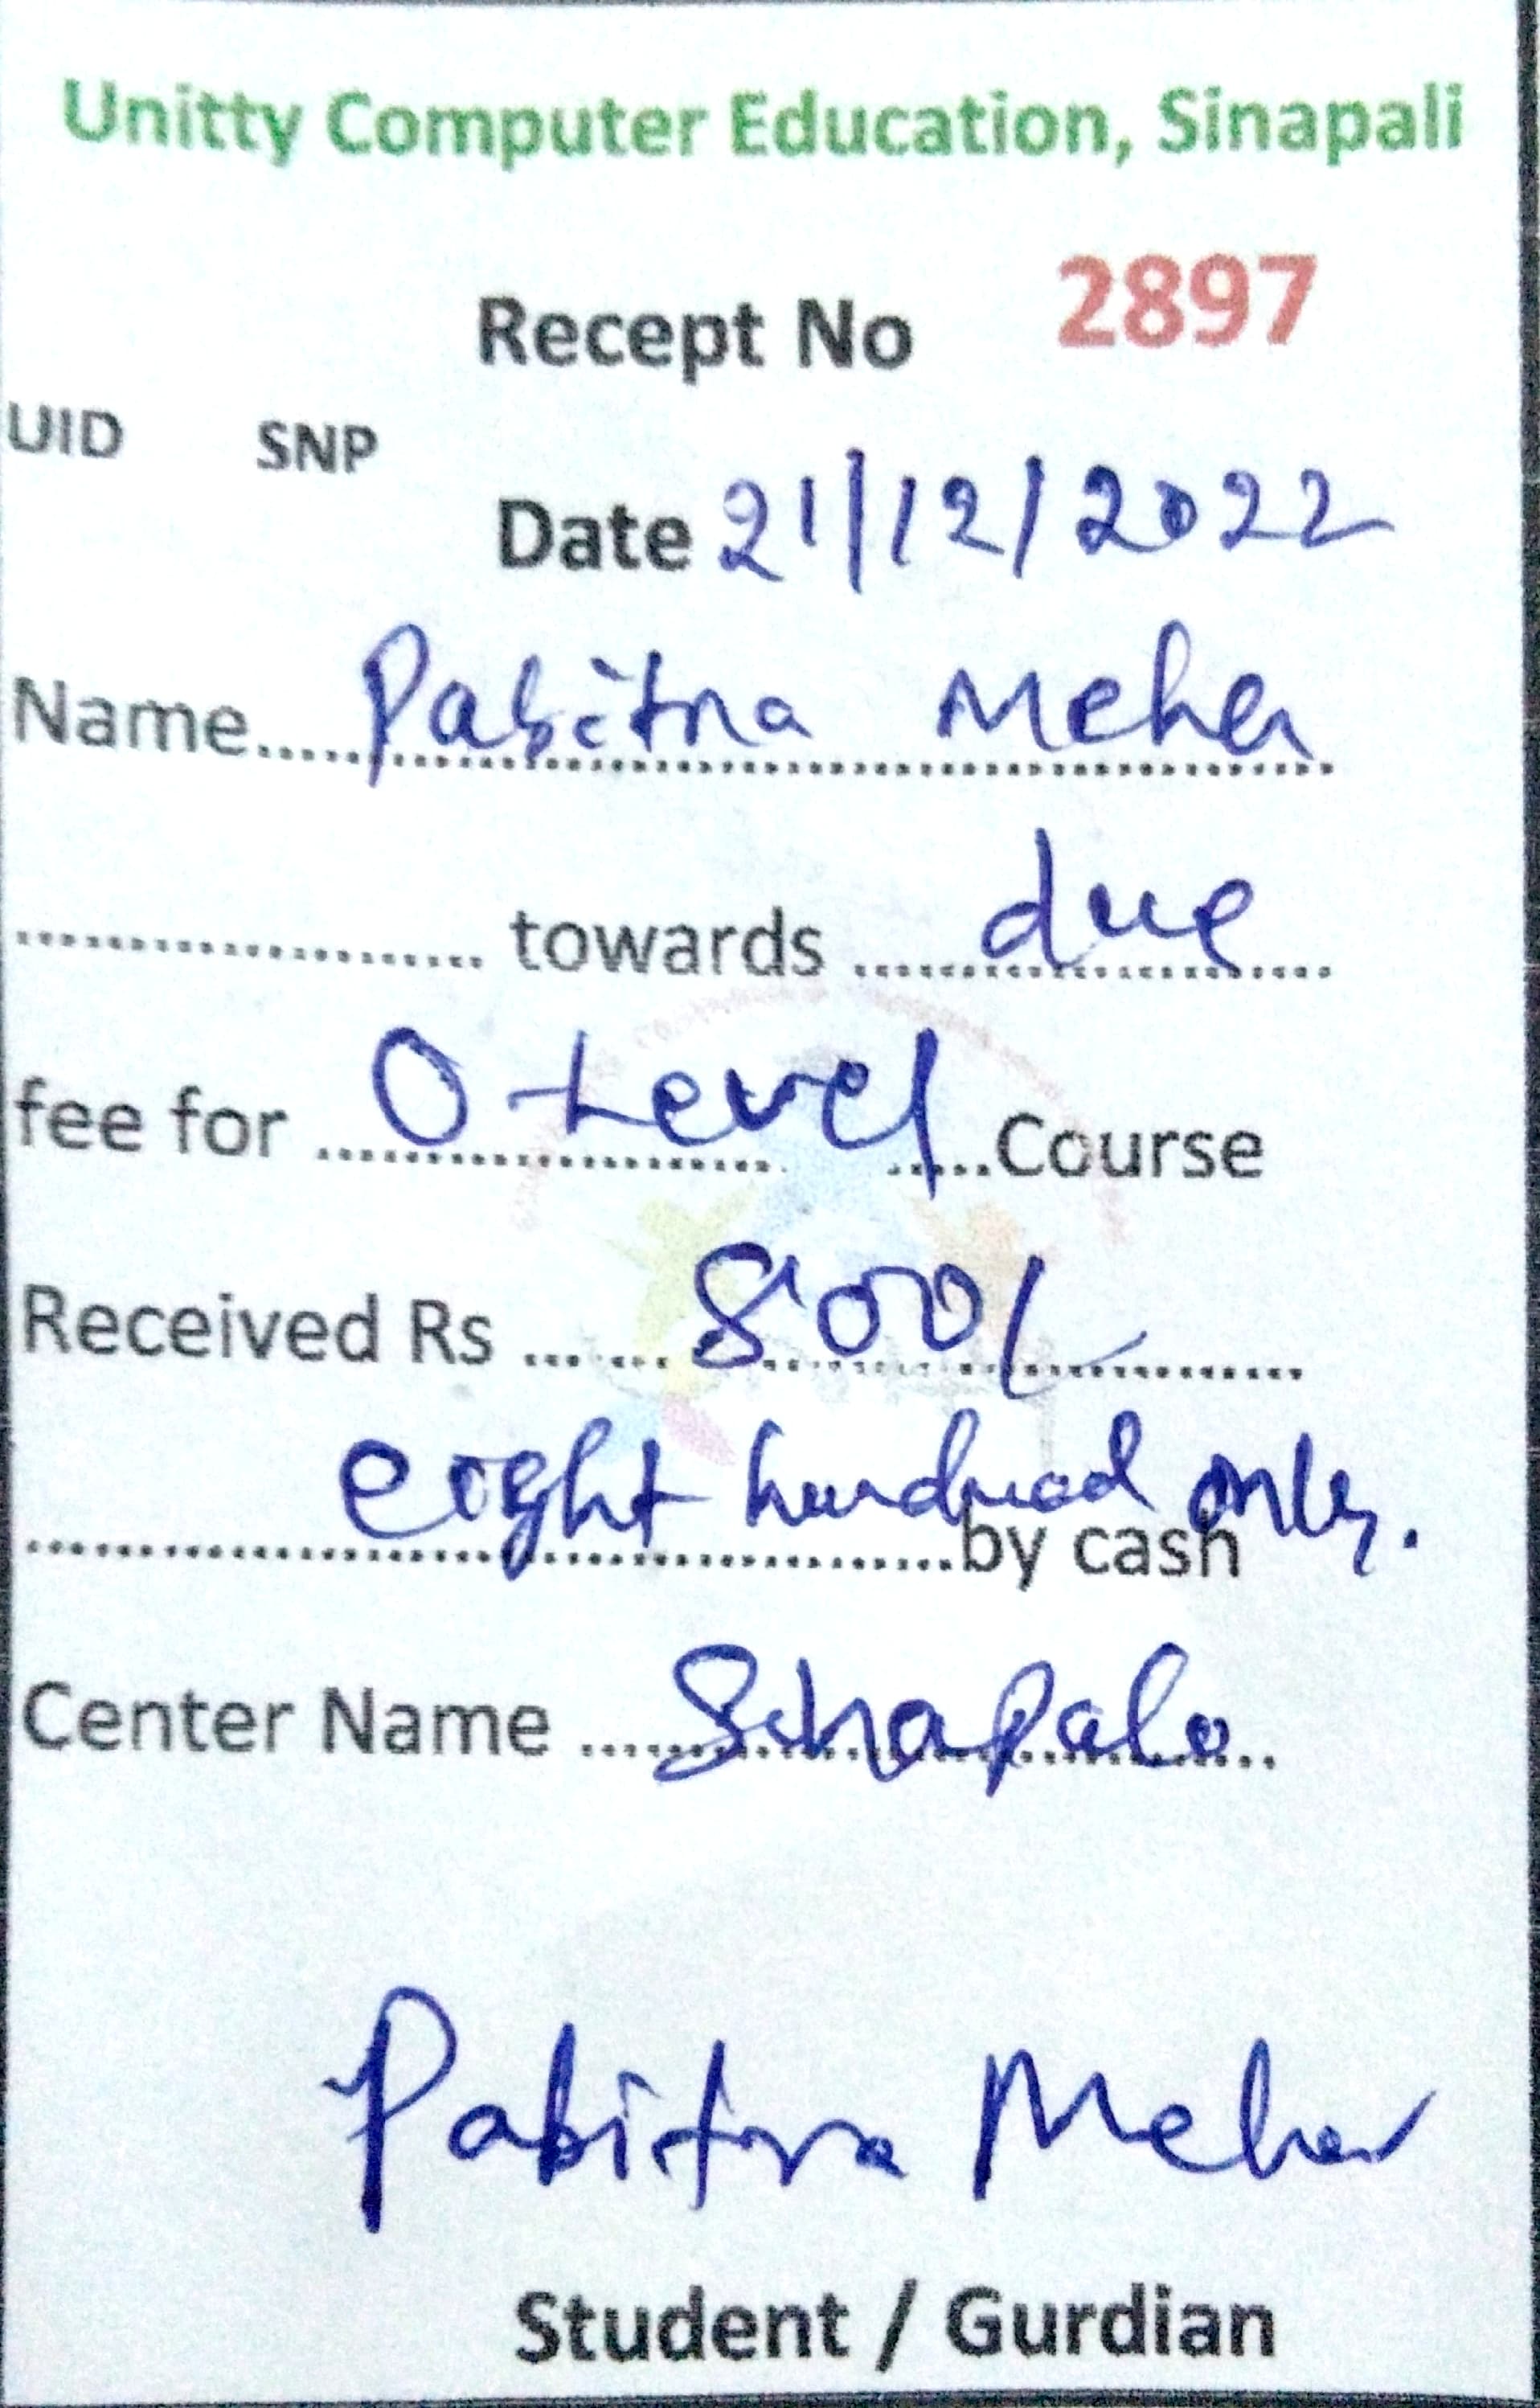 Unitty Computer Education, Sinapali
Recept No 2897
UID SNP
Date 21/12/2022
Name..... Pabitra Meher
.................... towards ..... due
fee for ..... O-Level .....Course
Received Rs ...... 800/-
eight hundred only.
........................by cash
Center Name ..... Sinapali
Pabitra Meher
Student / Gurdian